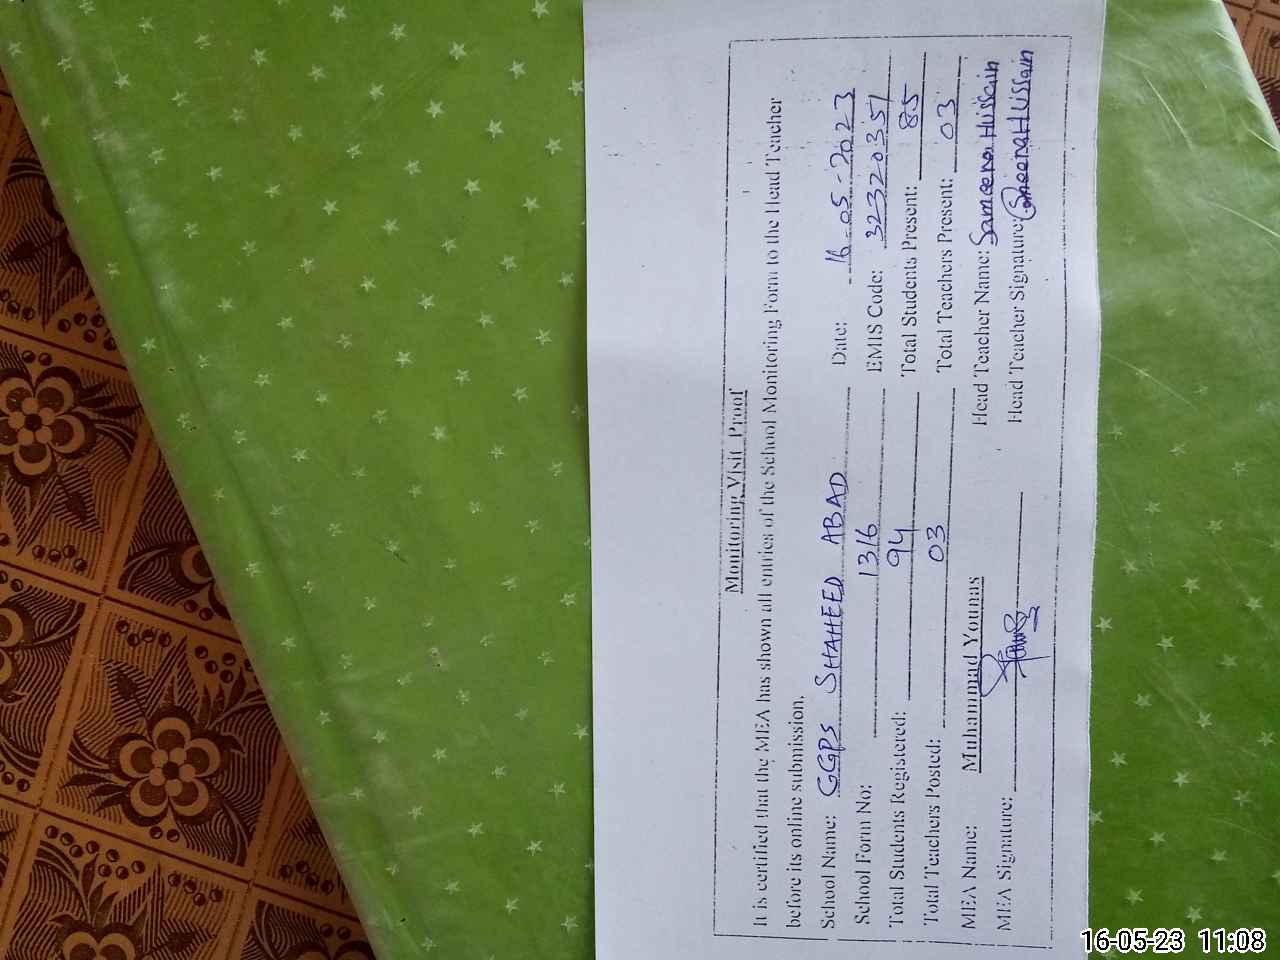 Monitoring Visit Proof
It is certified that the MEA has shown all entries of the School Monitoring Form to the Head Teacher
before its online submission.
School Name: GGPS SHAHEED ABAD Date: 16-05-2023
School Form No: 1316 EMIS Code: 32320351
Total Students Registered: 94 Total Students Present: 85
Total Teachers Posted: 03 Total Teachers Present: 03
MEA Name: Muhammad Younas Head Teacher Name: Sameena Hussain
MEA Signature: Head Teacher Signature:
16-05-23 11:08